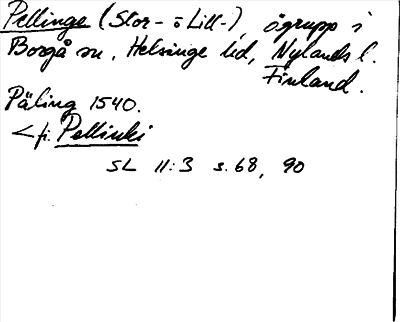 Pellinge (Stor- o Lill-), ögrupp i
Borgå sn, Helsinge hd, Nylands l.
Finland.
Päling 1540.
< fi. Pellinki
SL 11:3 s. 68, 90